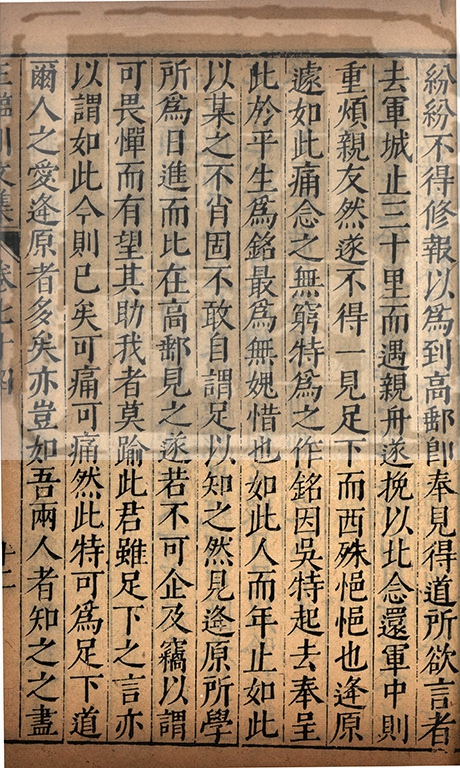 紛紛不得修報以爲到高郵即奉見得道所欲言者
去軍城止三十里而遇親舟遂挽以北念還軍中則
重煩親友然遂不得一見足下而西殊悒悒也逄原
遽如此痛念之無窮特爲之作銘因吳特起去奉呈
此於平生爲銘最爲無媿惜也如此人而年止如此
以某之不肖固不敢自謂足以知之然見逄原所學
所爲日進而比在高郵見之遂若不可企及竊以謂
可畏憚而有望其助我者莫踰此君雖足下之言亦
以謂如此今則已矣可痛可痛然此特可爲足下道
爾人之愛逄原者多矣亦豈如吾兩人者知之之盡
王臨川文集 卷七十四 十二